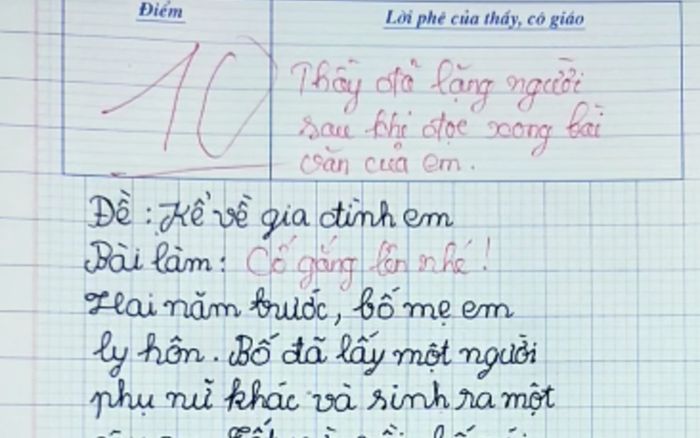 Điểm
Lời phê của thầy, cô giáo
10
Thầy đã lặng người
sau khi đọc xong bài
văn của em.
Đề : Kể về gia đình em
Bài làm : Cố gắng lên nhé !
Hai năm trước, bố mẹ em
ly hôn. Bố đã lấy một người
phụ nữ khác và sinh ra một